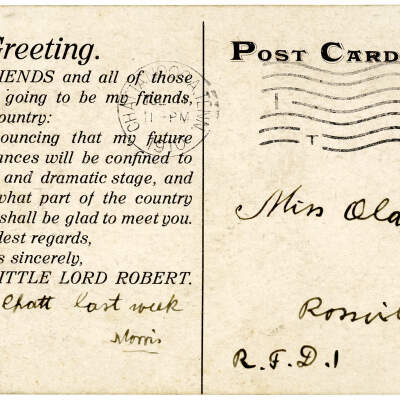 Greeting.
IENDS and all of those
going to be my friends,
ountry:
ouncing that my future
ances will be confined to
and dramatic stage, and
what part of the country
shall be glad to meet you.
dest regards,
s sincerely,
ITTLE LORD ROBERT.
Chatt last week
Morris
POST CARD
CHATTANOOGA, TENN
11-PM
1910
Miss Ola
Rossvil
R.F.D.1